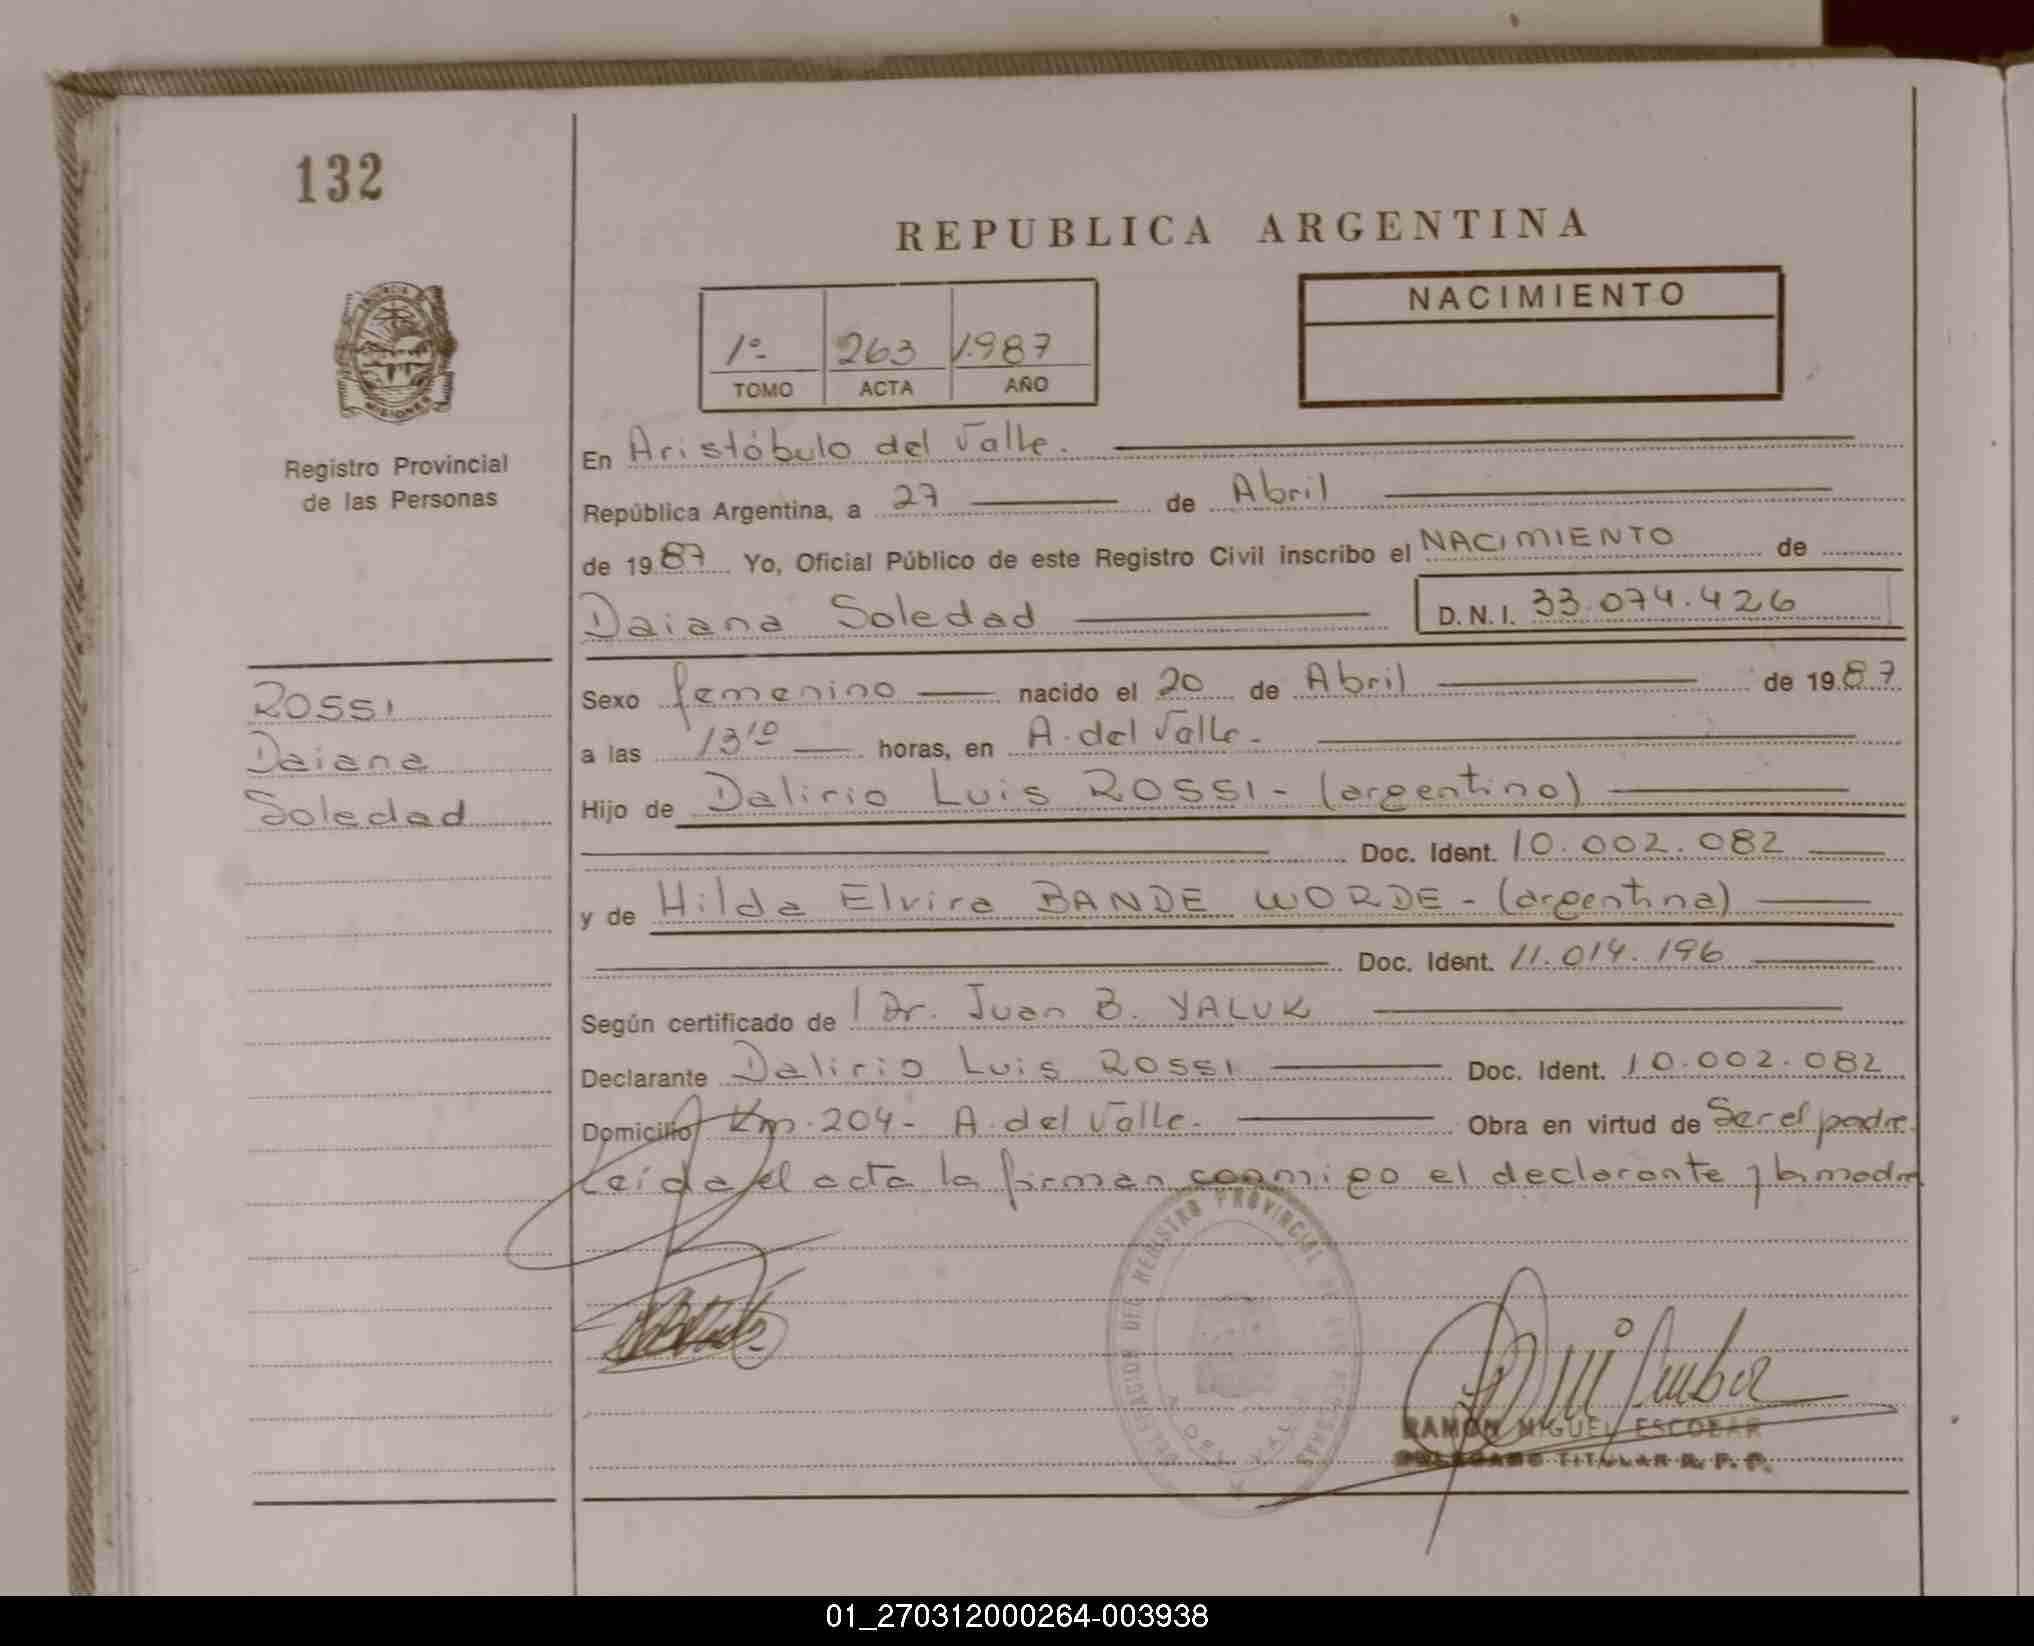 132
REPUBLICA ARGENTINA
NACIMIENTO
1º 263 1.987
TOMO ACTA AÑO
MISIONES
Registro Provincial
de las Personas
En Aristóbulo del Valle.
República Argentina, a 27 de Abril
de 1987 Yo, Oficial Público de este Registro Civil inscribo el NACIMIENTO de
Daiana Soledad D.N.I. 33.074.426
ROSSI
Daiana
Soledad
Sexo femenino nacido el 20 de Abril de 1987
a las 13¹⁰ horas, en A. del Valle.
Hijo de Dalirio Luis ROSSI - (argentino)
Doc. Ident. 10.002.082
y de Hilda Elvira BANDE WORDE - (argentina)
Doc. Ident. 11.014.196
Según certificado de l Dr. Juan B. YALUK
Declarante Dalirio Luis ROSSI Doc. Ident. 10.002.082
Domicilio Km. 204 - A. del Valle. Obra en virtud de Ser el padre.
Leída el acta la firman conmigo el declarante y la madre
DELEGACION DEL REGISTRO PROVINCIAL DE LAS PERSONAS
A. DEL VALLE
RAMON MIGUEL ESCOBAR
DELEGADO TITULAR R. P. P.
01_270312000264-003938